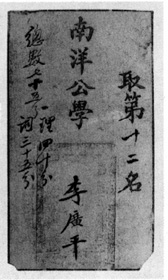 取第十二名
南洋公學
李廣平
總數七十五分
理四十分
詞三十五分